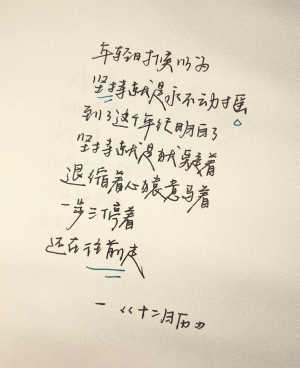 年轻时候以为
坚持就是永不动摇
到了这个年纪明白了
坚持就是犹豫着
退缩着心猿意马着
一步三停着
还在往前走
—《十二月历》